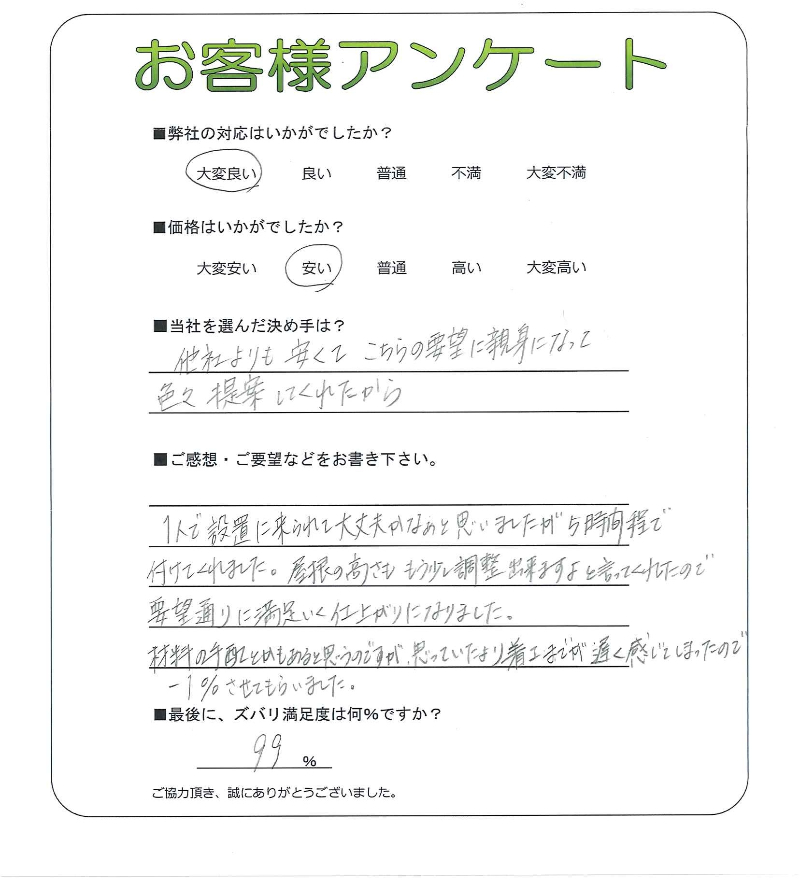 お客様アンケート
■弊社の対応はいかがでしたか？
大変良い 良い 普通 不満 大変不満
■価格はいかがでしたか？
大変安い 安い 普通 高い 大変高い
■当社を選んだ決め手は？
他社よりも 安くて こちらの要望に親身になって
色々 提案 してくれたから
■ご感想・ご要望などをお書き下さい。
1人で設置に来られて大丈夫かなぁと思いましたが 5時間程で
付けてくれました。屋根の高さも もう少し調整出来ますよと言ってくれたので
要望通りに満足いく仕上がりになりました。
材料の手配とかもあると思うのですが、思っていたより着工までが遅く感じてしまったので
－1%させてもらいました。
■最後に、ズバリ満足度は何%ですか？
99 %
ご協力頂き、誠にありがとうございました。